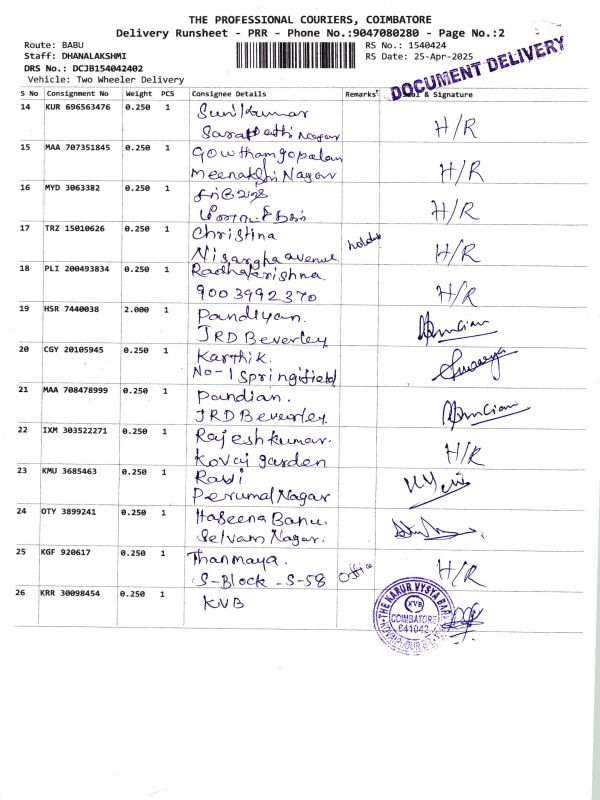 THE PROFESSIONAL COURIERS, COIMBATORE
Delivery Runsheet - PRR - Phone No.:9047080280 - Page No.:2
Route: BABU
Staff: DHANALAKSHMI
DRS No.: DCJB154042402
Vehicle: Two Wheeler Delivery
RS No.: 1540424
RS Date: 25-Apr-2025
DOCUMENT DELIVERY
S No Consignment No Weight PCS Consignee Details Remarks & Signature
14 KUR 696563476 0.250 1 Sunilkumar
Sarapathi Nagar H/R
15 MAA 707351845 0.250 1 Gowthamgopalan
Meenakshi Nagar H/R
16 MYD 3063382 0.250 1
H/R
17 TRZ 15010626 0.250 1 Christina
Nisargha avenue H/R
18 PLI 200493834 0.250 1 Radhakrishna
9003992370 H/R
19 HSR 7440038 2.000 1 Pandiyan.
JRD Beverley
20 CGY 20105945 0.250 1 Karthik.
No-1 Springifield
21 MAA 708478999 0.250 1 Pandian.
JRD Beverley
22 IXM 303522271 0.250 1 Rajeshkumar.
Kovai garden H/R
23 KMU 3685463 0.250 1 Ravi
Perumal Nagar
24 OTY 3899241 0.250 1 Haseena Banu.
Selvam Nagar.
25 KGF 920617 0.250 1 Thanmaya.
S-Block -S-58 Office H/R
26 KRR 30098454 0.250 1 KVB
THE KARUR VYSYA BANK
KVB
COIMBATORE
641042